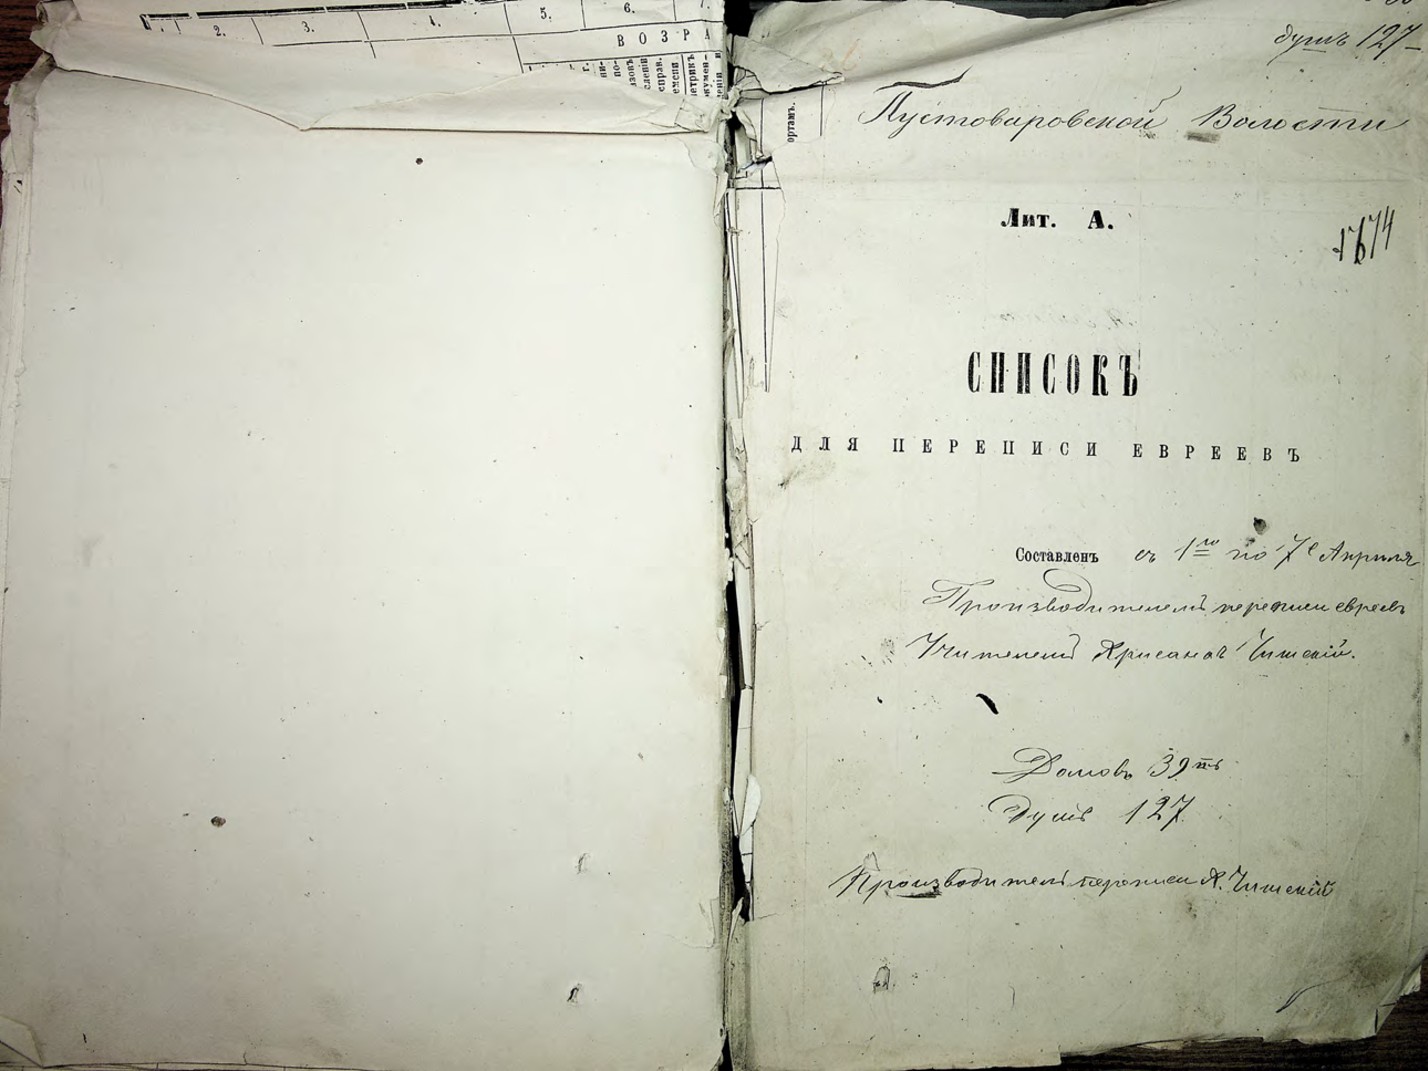 2. 3. 4. 5. 6.
ВОЗРА
ортамъ.
душъ 127
Пустоваровской Волости
Лит. А.
СПИСОКЪ
ДЛЯ ПЕРЕПИСИ ЕВРЕЕВЪ
Составленъ съ 1го по 7е Апрѣля
Производителемъ переписи евреевъ
Учителемъ Чишскій.
Домовъ 39ть
Душъ 127
Производитель переписи Х. Чишскій